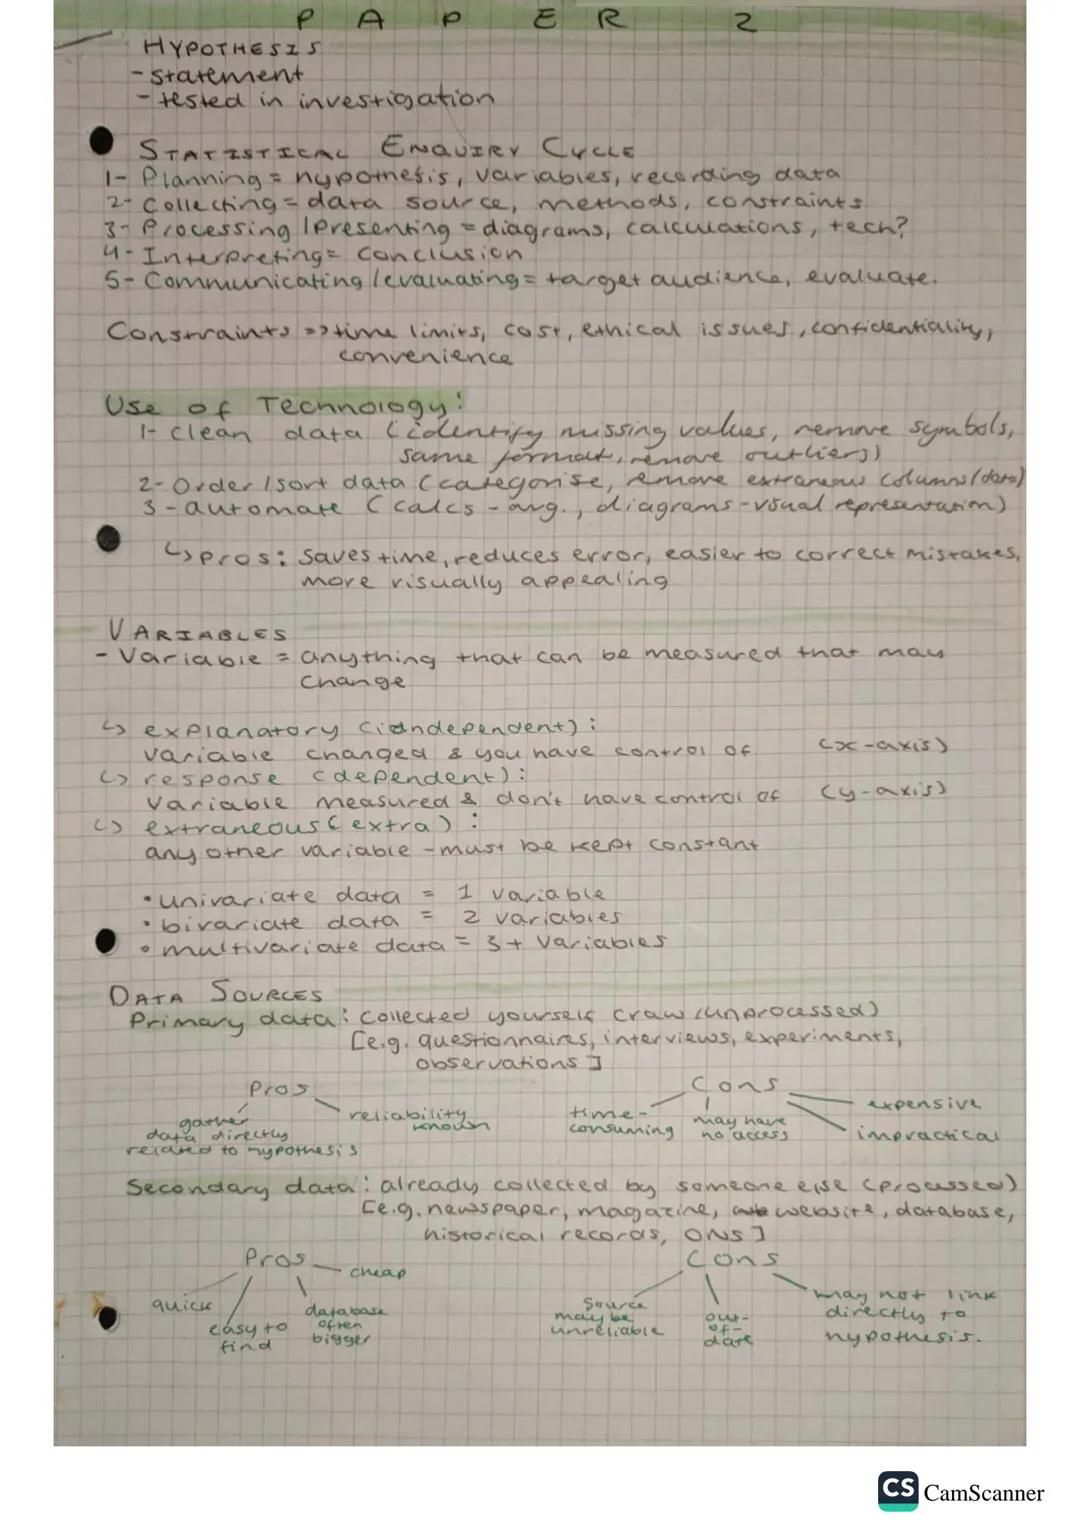 PAPER 2
HYPOTHESIS
- statement
- tested in investigation
STATISTICAL ENQUIRY CYCLE
1- Planning = hypothesis, variables, recording data
2- Collecting = data source, methods, constraints
3- Processing / Presenting = diagrams, calculations, tech?
4- Interpreting = conclusion
5- Communicating / evaluating = target audience, evaluate.
Constraints => time limits, cost, ethical issues, confidentiality,
convenience
Use of Technology:
1- clean data (identify missing values, remove symbols,
same format, remove outliers)
2- Order / sort data (categorise, remove extraneous columns/data)
3- automate (calcs - avg., diagrams - visual representation)
↳ pros: saves time, reduces error, easier to correct mistakes,
more visually appealing
VARIABLES
- Variable = anything that can be measured that may
change
↳ explanatory (independent):
variable changed & you have control of (x-axis)
↳ response (dependent):
variable measured & don't have control of (y-axis)
↳ extraneous (extra):
any other variable - must be kept constant
• univariate data = 1 variable
• bivariate data = 2 variables
• multivariate data = 3+ variables
DATA SOURCES
Primary data: collected yourself (raw/unprocessed)
[e.g. questionnaires, interviews, experiments,
observations]
Pros Cons
gather data directly related to hypothesis
reliability known
time-consuming
may have no access
expensive
impractical
Secondary data: already collected by someone else (processed)
[e.g. newspaper, magazine, website, database,
historical records, ONS]
Pros Cons
quick
easy to find
database often bigger
cheap
source may be unreliable
out-of-date
may not link directly to hypothesis.
CS CamScanner